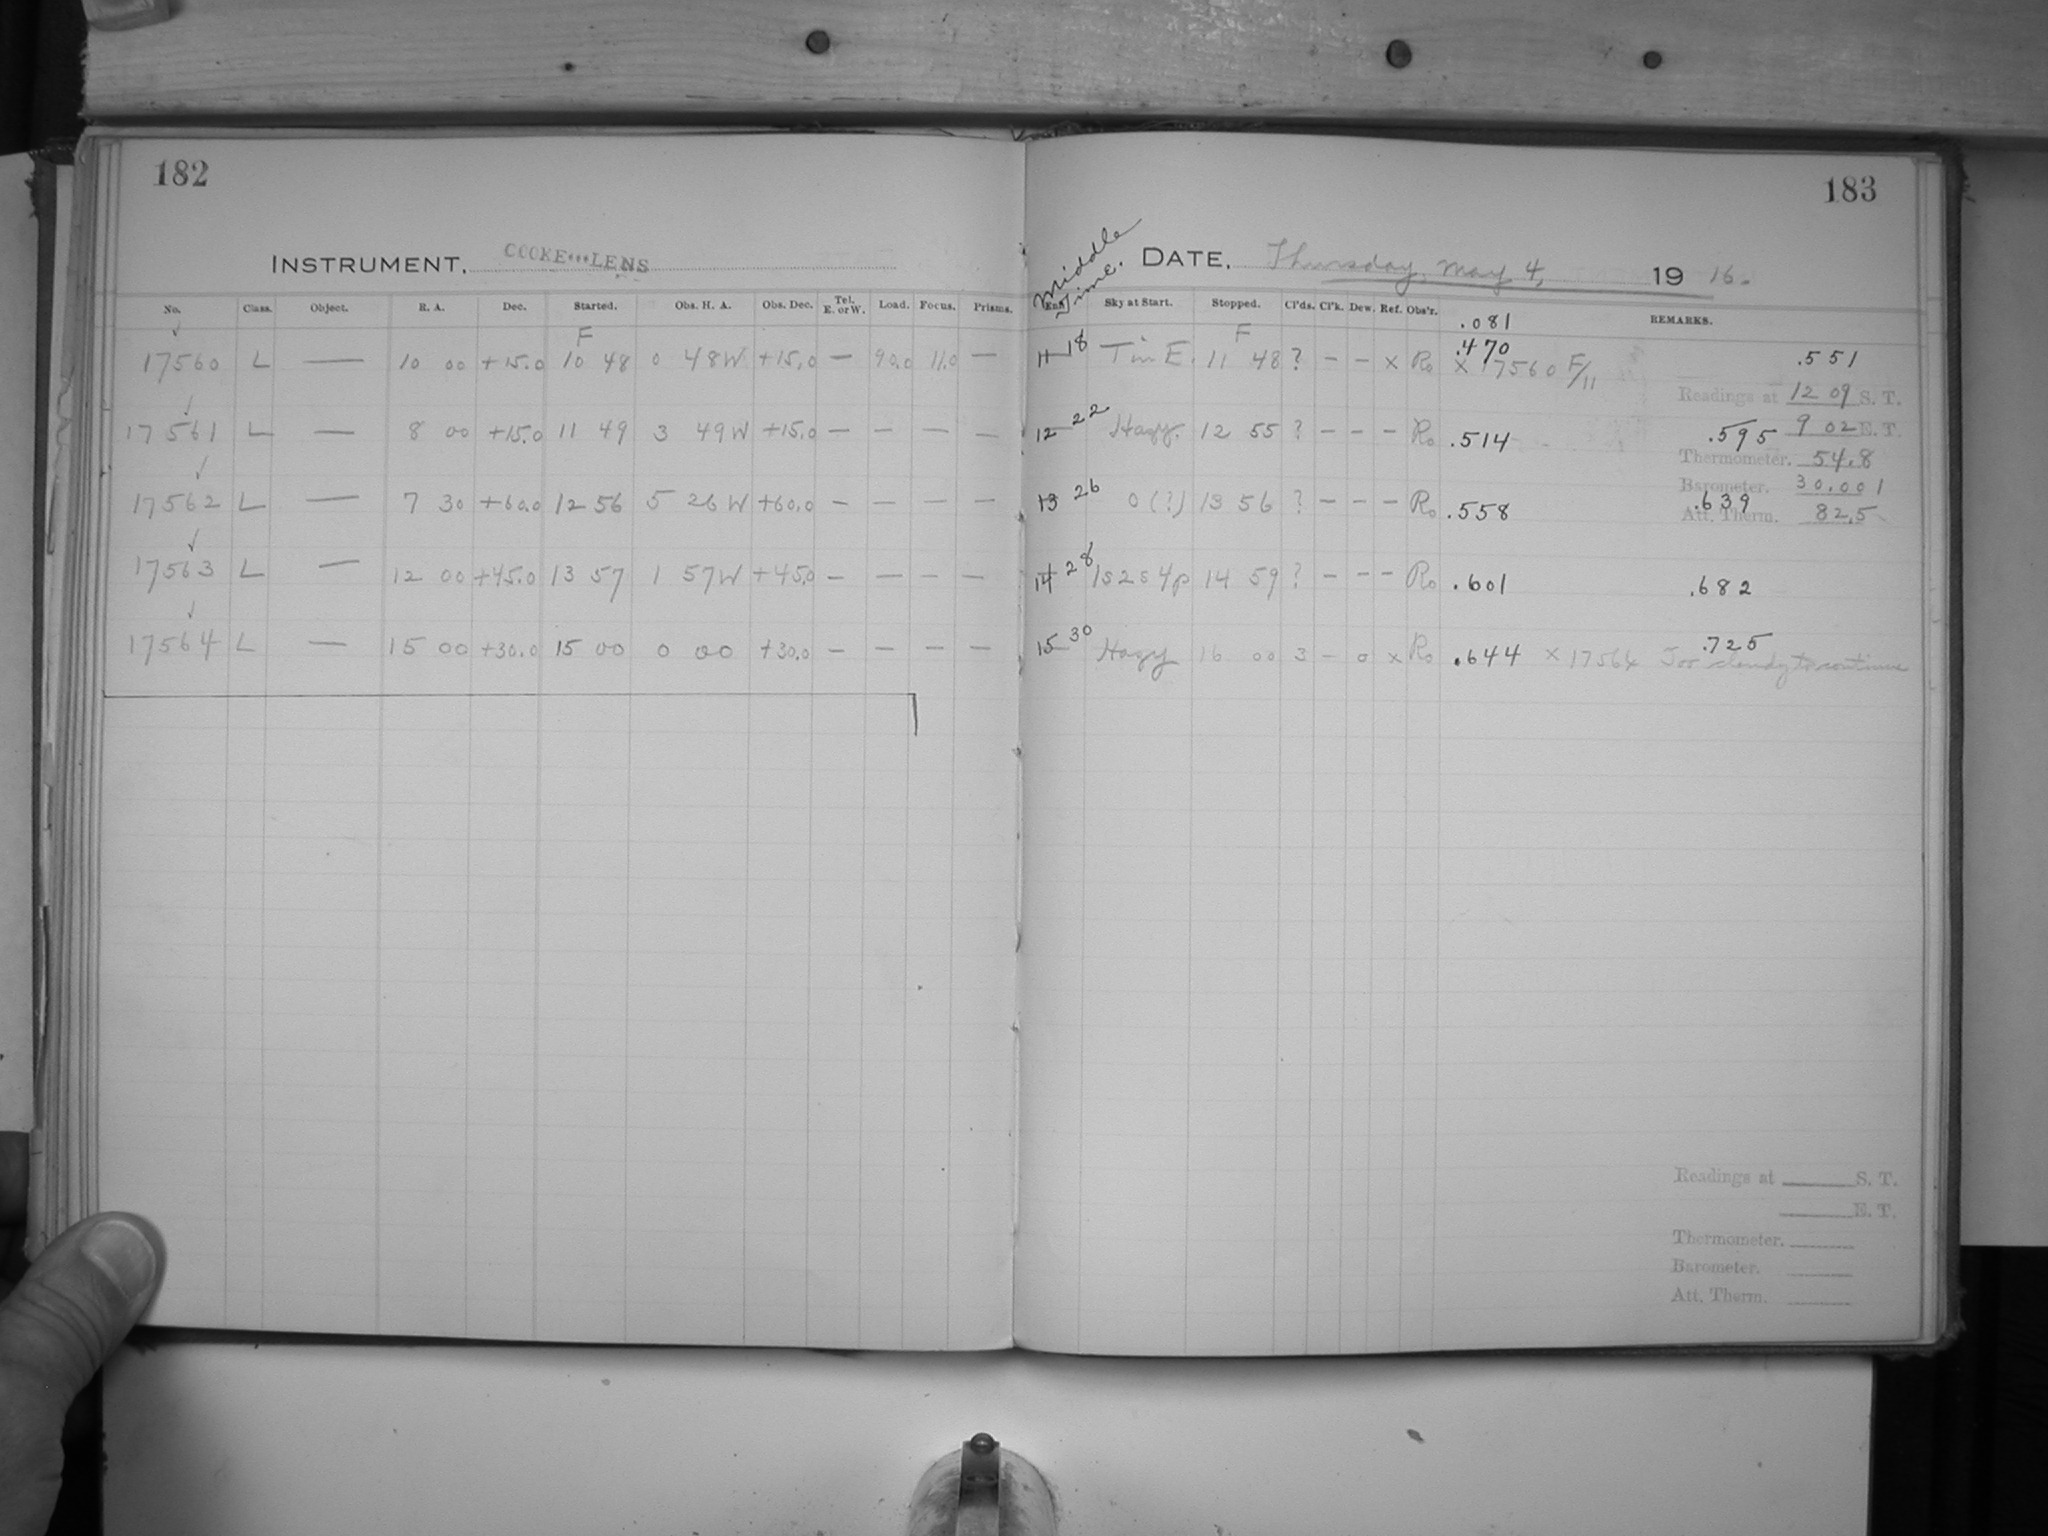 182
183
INSTRUMENT. COOKE LENS
Middle Time.
DATE. Thursday, May 4, 1916.
No. Class. Object. R. A. Dec. Started. Obs. H. A. Obs. Dec. Tel. E. or W. Load. Focus. Prisms. Sky at Start. Stopped. Cl'ds. Cl'k. Dew. Ref. Obs'r. REMARKS.
.081
F F
17560 L — 10 00 +15.0 10 48 0 48W +15.0 — 90.0 11.0 — 11 18 Tin E. 11 48 ? — — x Ro .470 x 17560 F/11 .551
Readings at 12 09 S. T.
17561 L — 8 00 +15.0 11 49 3 49W +15.0 — — — — 12 22 Hazy. 12 55 ? — — — Ro .514 .595
9 02 E. T.
Thermometer. 54.8
Barometer. 30.001
17562 L — 7 30 +60.0 12 56 5 26 W +60.0 — — — — 13 26 0 (?) 13 56 ? — — — Ro .558 .639
Att. Therm. 82.5
17563 L — 12 00 +45.0 13 57 1 57W +45.0 — — — — 14 28 1s2s4p 14 59 ? — — — Ro .601 .682
17564 L — 15 00 +30.0 15 00 0 00 +30.0 — — — — 15 30 Hazy 16 00 3 — 0 x Ro .644 x 17564 Too cloudy to continue .725
Readings at S. T.
E. T.
Thermometer.
Barometer.
Att. Therm.